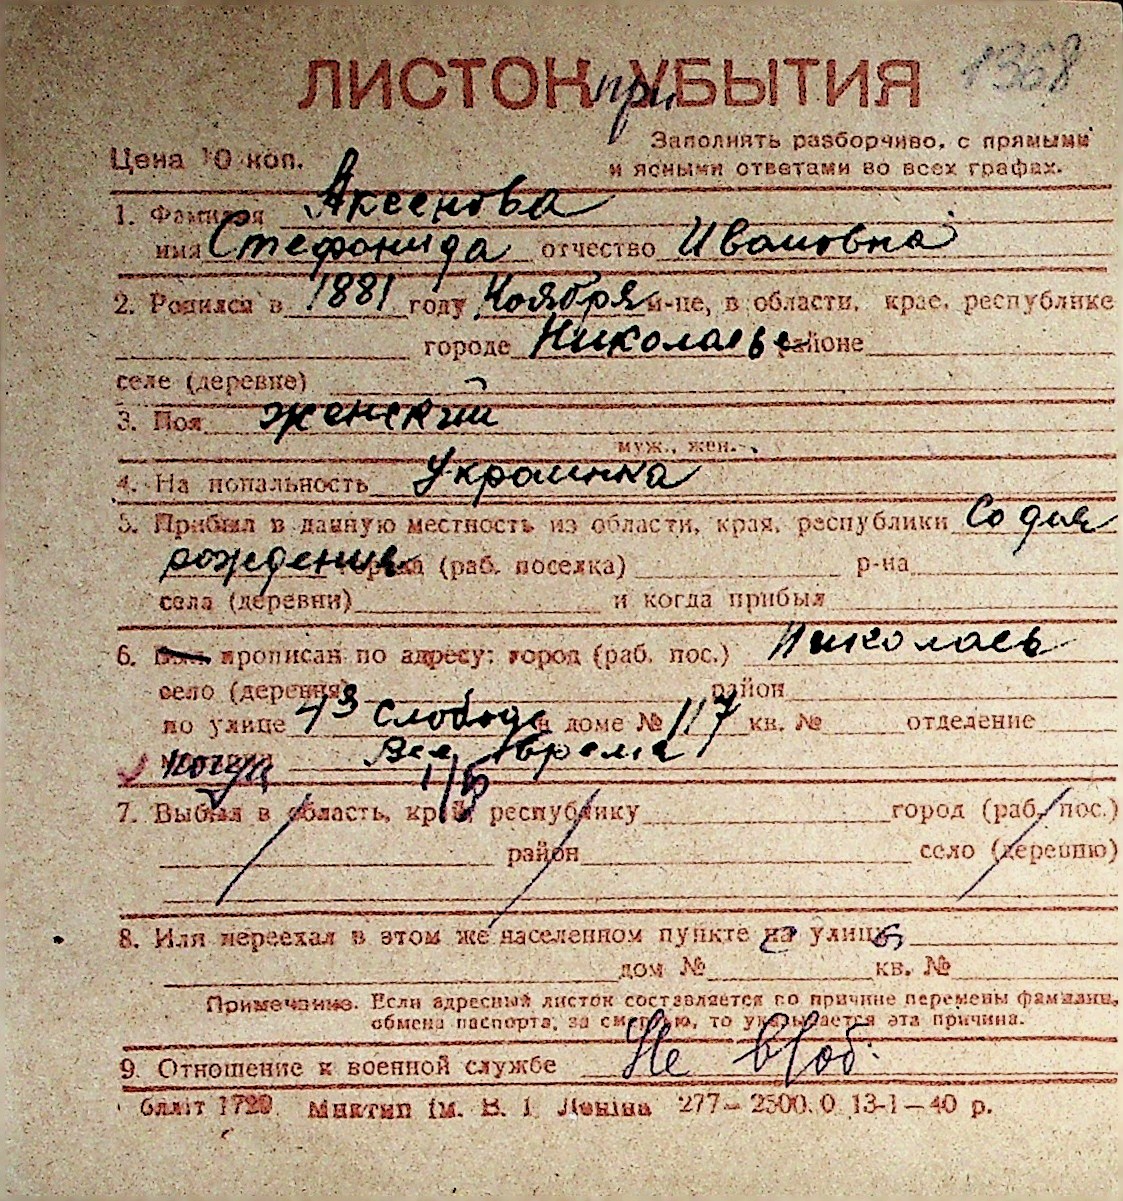 ЛИСТОК при УБЫТИЯ 1368
Цена 10 коп.
Заполнять разборчиво, с прямыми
и ясными ответами во всех графах.
1. Фамилия Аксенова
имя Стефонида отчество Ивановна
2. Родился в 1881 году Ноября м-це, в области, крае, республике
городе Николаеве районе
селе (деревне)
3. Пол женский
муж., жен.
4. На иональность Украинка
5. Прибыл в данную местность из области, края, республики Со дня
рождения города (раб. поселка) р-на
села (деревни) и когда прибыл
6. Был прописан по адресу: город (раб. пос.) Николаев
село (деревня) район
по улице 43 Слободс доме № 117 кв. № отделение
милиции Все время
7. Выбыл в область, край, республику город (раб. пос.)
район село (деревню)
8. Или переехал в этом же населенном пункте на улицу
дом № кв. №
Примечание. Если адресный листок составляется по причине перемены фамилии,
обмена паспорта, за смертью, то указывается эта причина.
9. Отношение к военной службе Не в/об.
бліліт 1729. Миктип ім. В. І Леніна 277—2500.0 13-1—40 р.